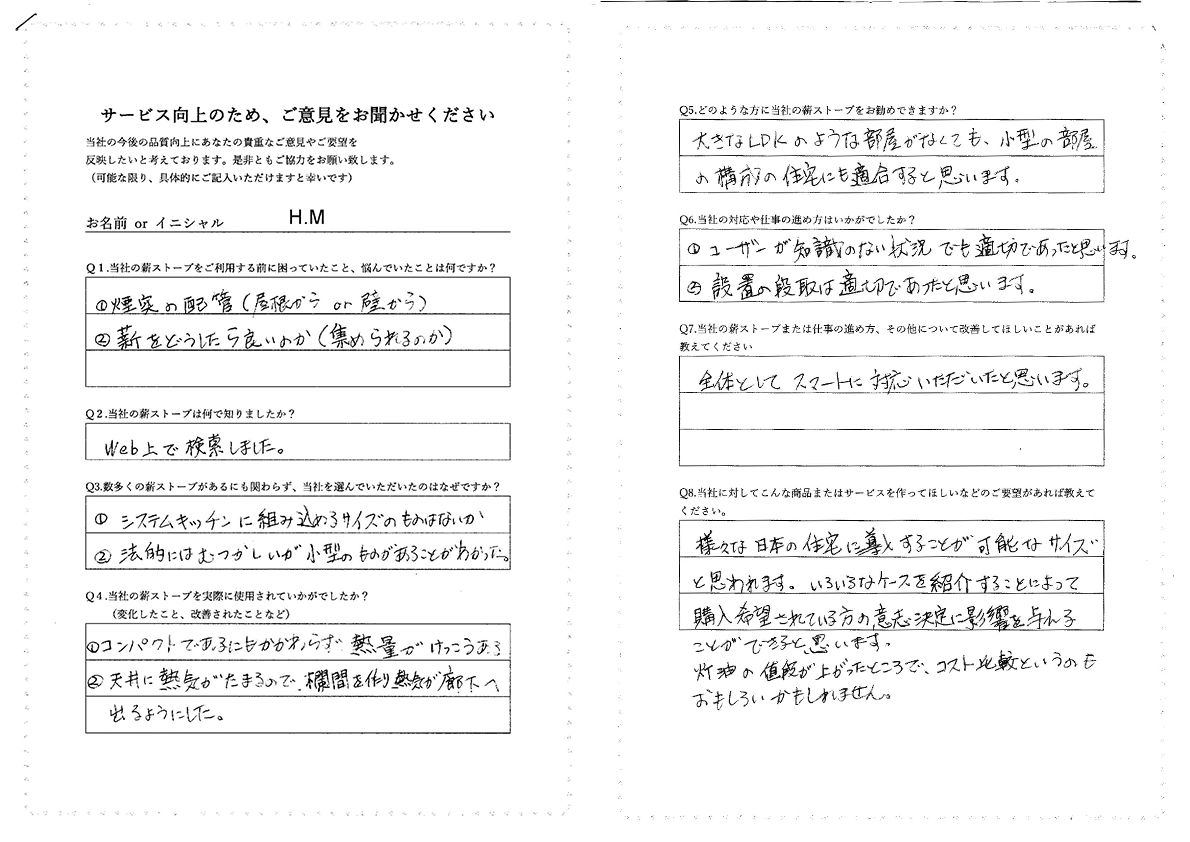 サービス向上のため、ご意見をお聞かせください
当社の今後の品質向上にあなたの貴重なご意見やご要望を
反映したいと考えております。是非ともご協力をお願い致します。
（可能な限り、具体的にご記入いただけますと幸いです）
お名前 or イニシャル H.M
Q1.当社の薪ストーブをご利用する前に困っていたこと、悩んでいたことは何ですか？
①煙突の配管(屋根から or 壁から)
②薪をどうしたら良いのか(集められるのか)
Q2.当社の薪ストーブは何で知りましたか？
Web上で検索しました。
Q3.数多くの薪ストーブがあるにも関わらず、当社を選んでいただいたのはなぜですか？
① システムキッチンに組み込めるサイズのものはないか
② 法的にはむつかしいが小型のものがあることがわかった。
Q4.当社の薪ストーブを実際に使用されていかがでしたか？
（変化したこと、改善されたことなど）
①コンパクトであるにもかかわらず 熱量がけっこうある
② 天井に熱気がたまるので、欄間を作り熱気が廊下へ
出るようにした。
Q5.どのような方に当社の薪ストーブをお勧めできますか？
大きなLDKのような部屋がなくても、小型の部屋
の構成の住宅にも適合すると思います。
Q6.当社の対応や仕事の進め方はいかがでしたか？
① ユーザーが知識のない状況でも適切であったと思います。
② 設置の段取は適切であったと思います。
Q7.当社の薪ストーブまたは仕事の進め方、その他について改善してほしいことがあれば
教えてください
全体としてスマートに対応いただいたと思います。
Q8.当社に対してこんな商品またはサービスを作ってほしいなどのご要望があれば教えて
ください。
様々な日本の住宅に導入することが可能なサイズ
と思われます。いろいろなケースを紹介することによって
購入希望されている方の意志決定に影響を与える
ことができると思います。
灯油の値段が上がったところで、コスト比較というのも
おもしろいかもしれません。